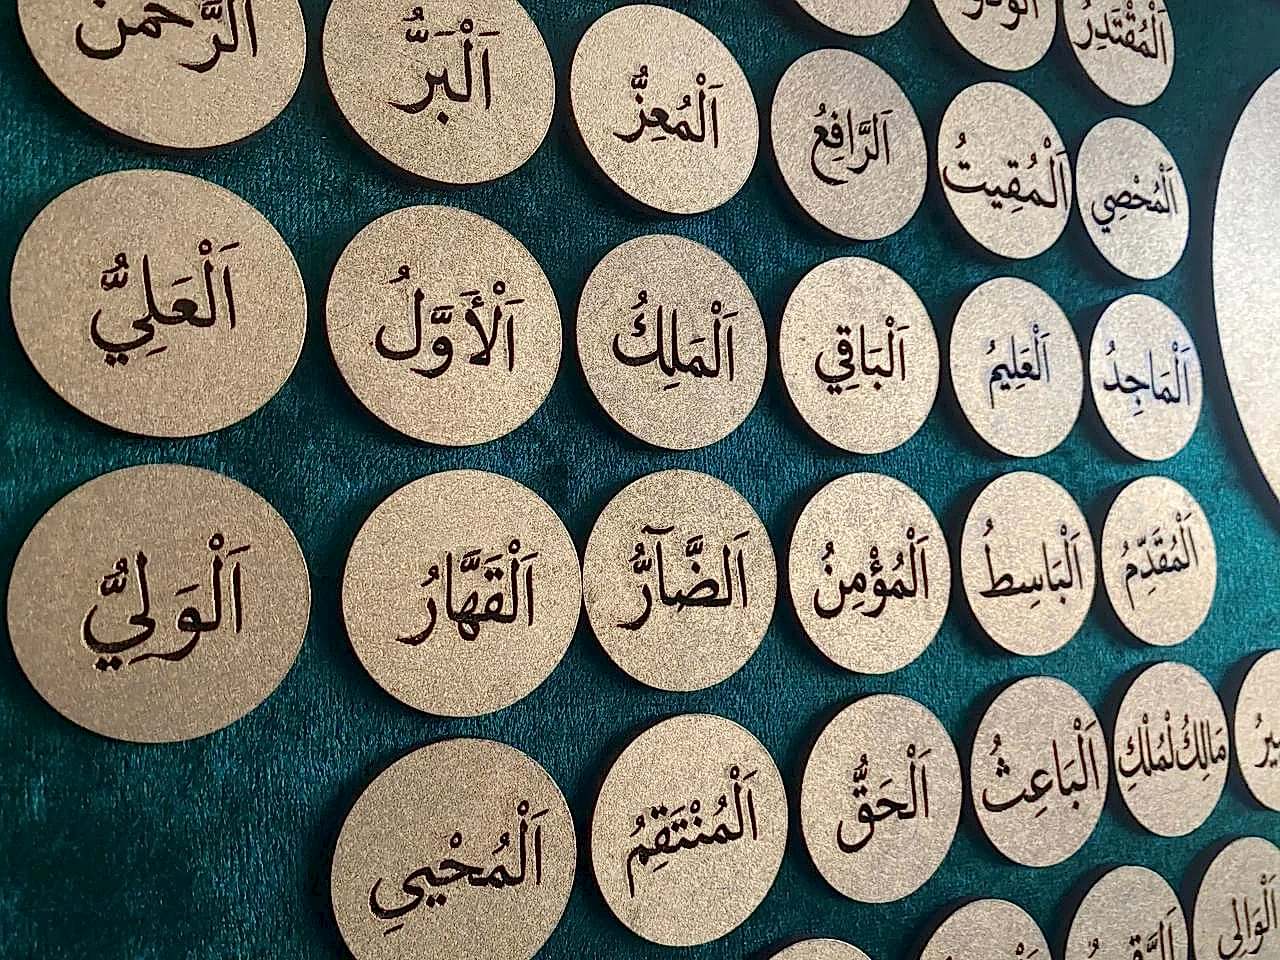 اَلْمُقْتَدِرُ
اَلرَّحْمٰنُ
اَلْبَرُّ
اَلْمُعِزُّ
اَلرَّافِعُ
اَلْمُقِيتُ
اَلْمُحْصِي
اَلْعَلِيُّ
اَلْأَوَّلُ
اَلْمَلِكُ
اَلْبَاقِي
اَلْعَلِيمُ
اَلْمَاجِدُ
اَلْوَلِيُّ
اَلْقَهَّارُ
اَلضَّآرُّ
اَلْمُؤْمِنُ
اَلْبَاسِطُ
اَلْمُقَدِّمُ
اَلْمُحْيِي
اَلْمُنْتَقِمُ
اَلْحَقُّ
اَلْبَاعِثُ
مَالِكُ لْمُلْكِ
اَلْوَالِي